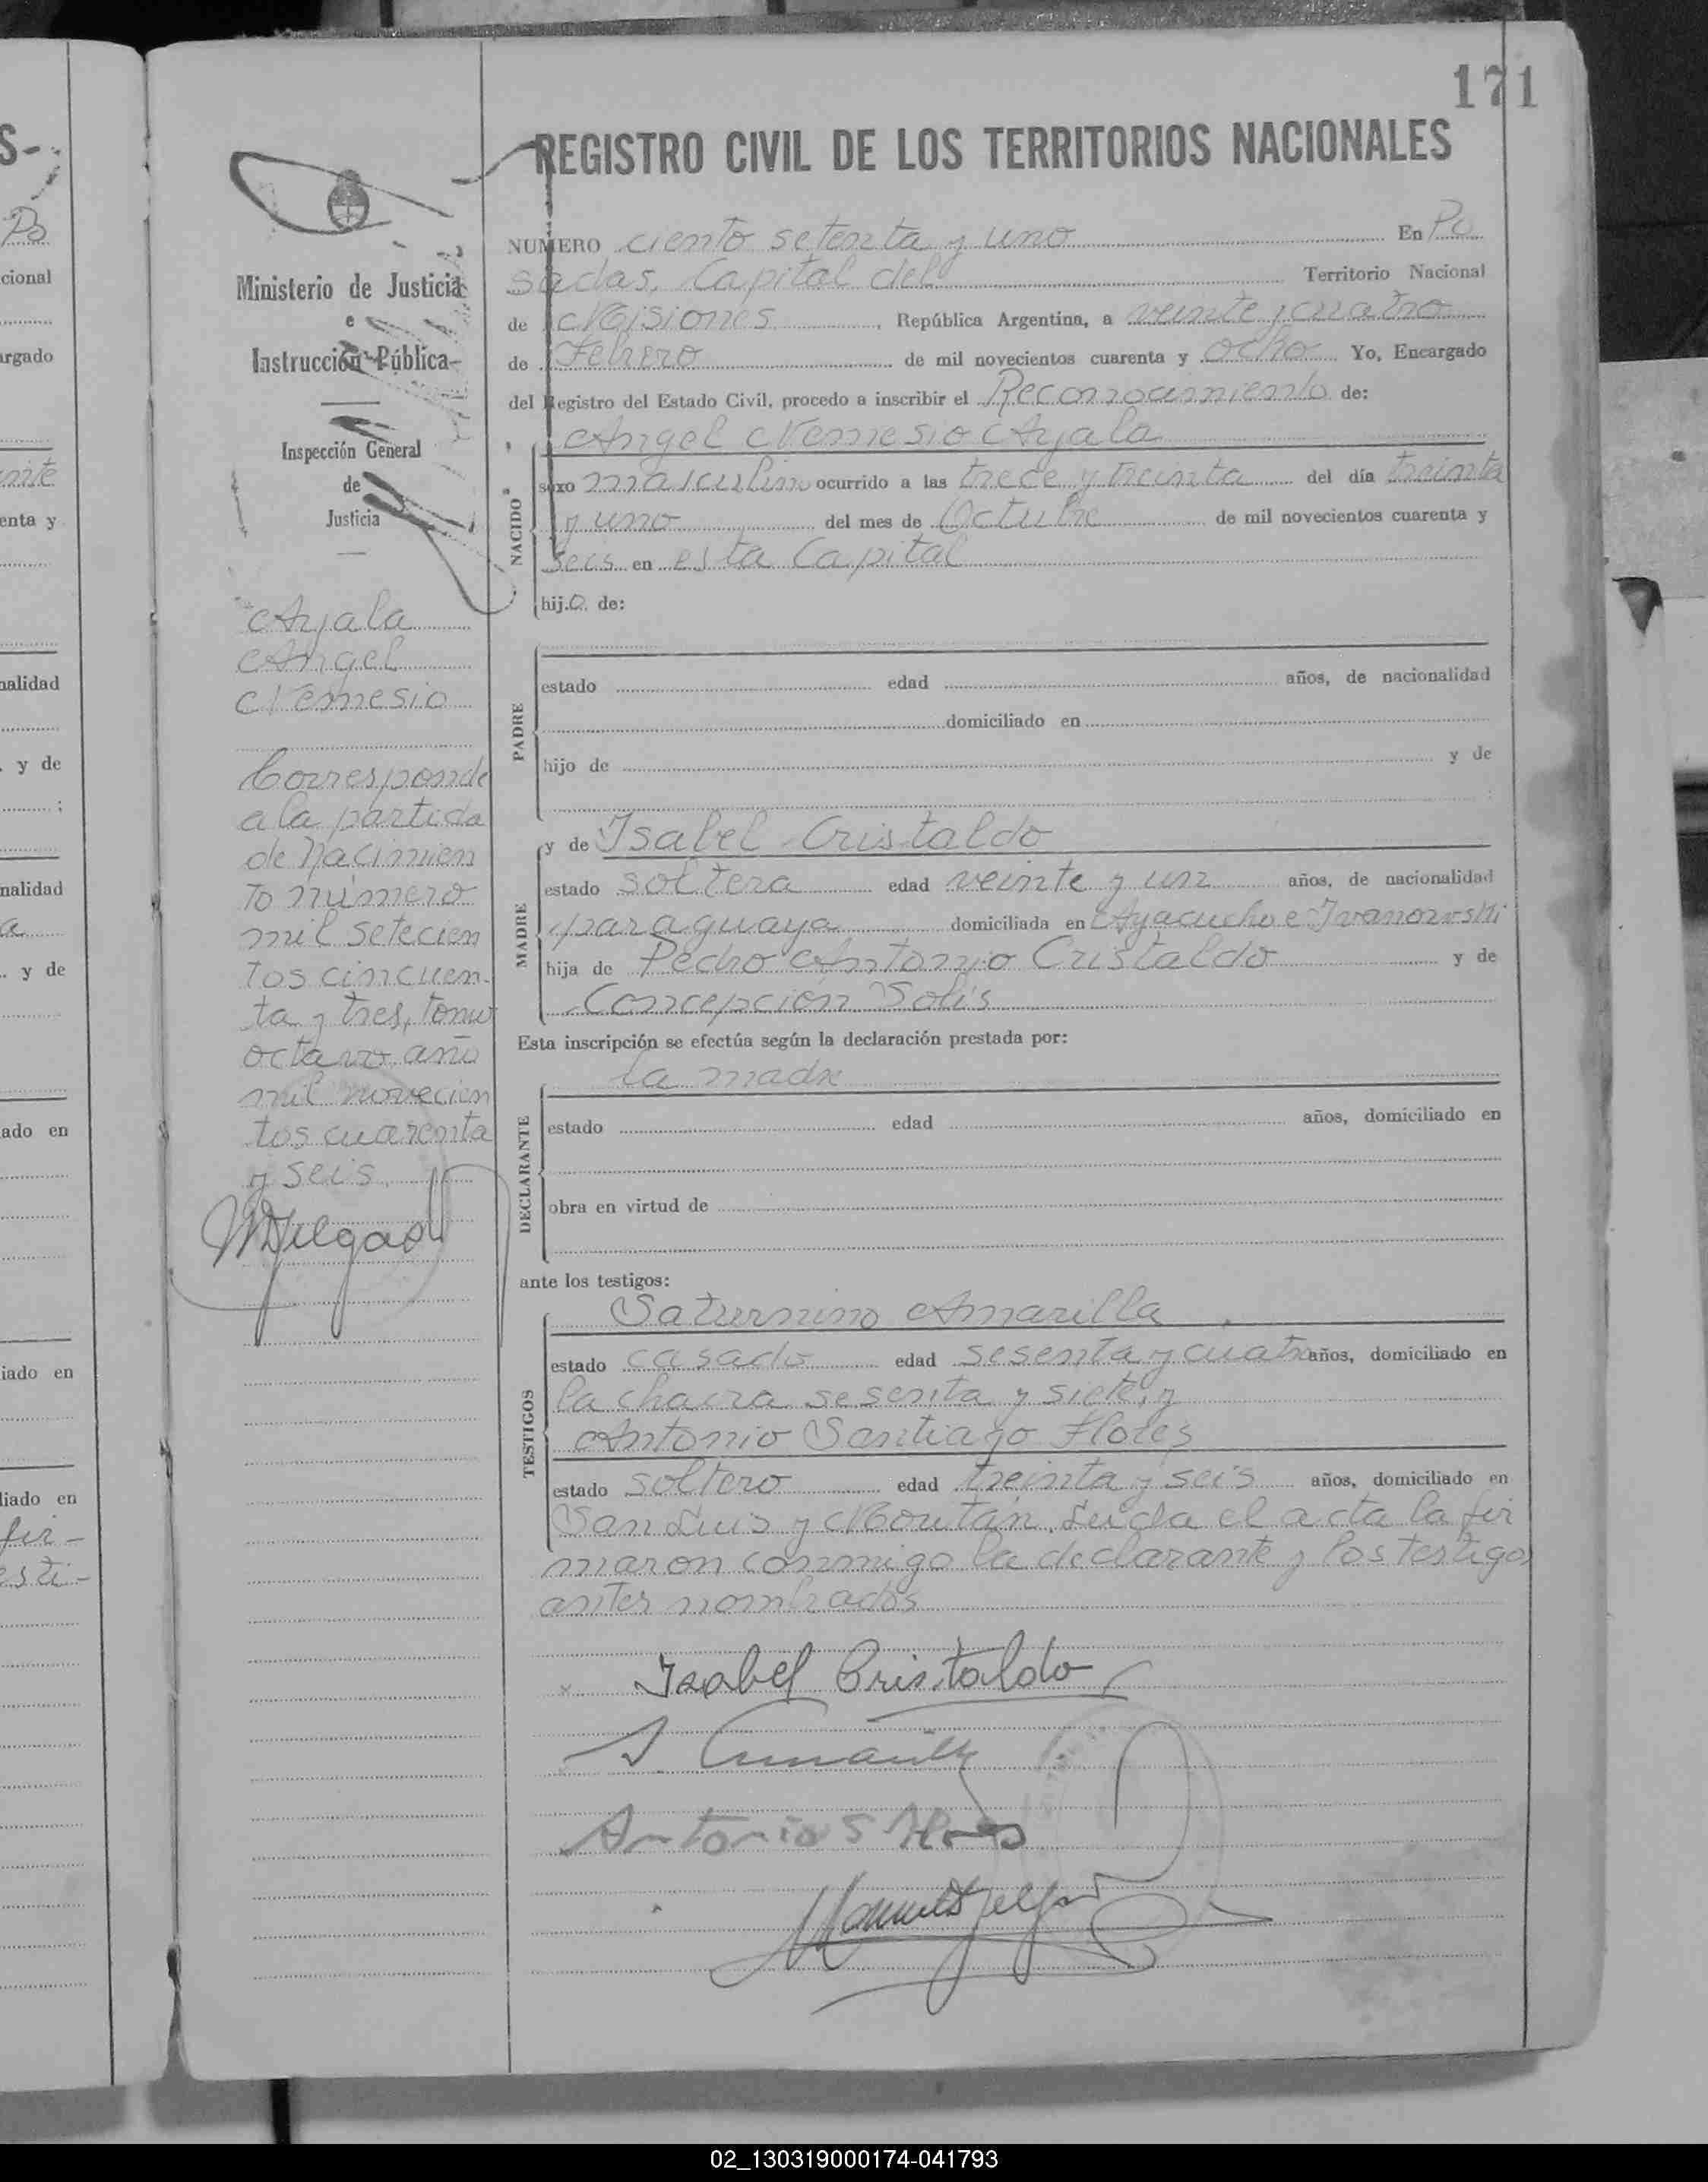 171
REGISTRO CIVIL DE LOS TERRITORIOS NACIONALES
NUMERO ciento setenta y uno En Po
sadas, Capital del Territorio Nacional
de Misiones, República Argentina, a veinte y cuatro
de Febrero de mil novecientos cuarenta y ocho Yo, Encargado
del Registro del Estado Civil, procedo a inscribir el Reconocimiento de:
Angel Nemesio Ayala
NACIDO
sexo masculino ocurrido a las trece y treinta del día treinta
y uno del mes de Octubre de mil novecientos cuarenta y
seis en esta Capital
hijo de:
PADRE
estado edad años, de nacionalidad
domiciliado en
hijo de y de
y de Isabel Cristaldo
MADRE
estado soltera edad veinte y un años, de nacionalidad
paraguaya domiciliada en Ayacucho e Ivanowski
hija de Pedro Antonio Cristaldo y de
Concepción Solís
Esta inscripción se efectúa según la declaración prestada por:
la madre
DECLARANTE
estado edad años, domiciliado en
obra en virtud de
ante los testigos:
Saturnino Amarilla
TESTIGOS
estado casado edad sesenta y cuatro años, domiciliado en
la chacra sesenta y siete, y
Antonio Santiago Flores
estado soltero edad treinta y seis años, domiciliado en
San Luis y Moután. Leída el acta la fir
maron conmigo la declarante y los testigos
antes nombrados
Isabel Cristaldo
S. Amarilla
Antonio S Flores
Ministerio de Justicia
e
Instrucción Pública
Inspección General
de
Justicia
Ayala
Angel
Nemesio
Corresponde
a la partida
de nacimien
to número
mil setecien
tos cincuen
ta y tres, tomo
octavo año
mil novecien
tos cuarenta
y seis.
S-
Po
cional
argado
enta y
nalidad
. y de
nalidad
a
. y de
ado en
iado en
liado en
fir-
esti-
02_130319000174-041793